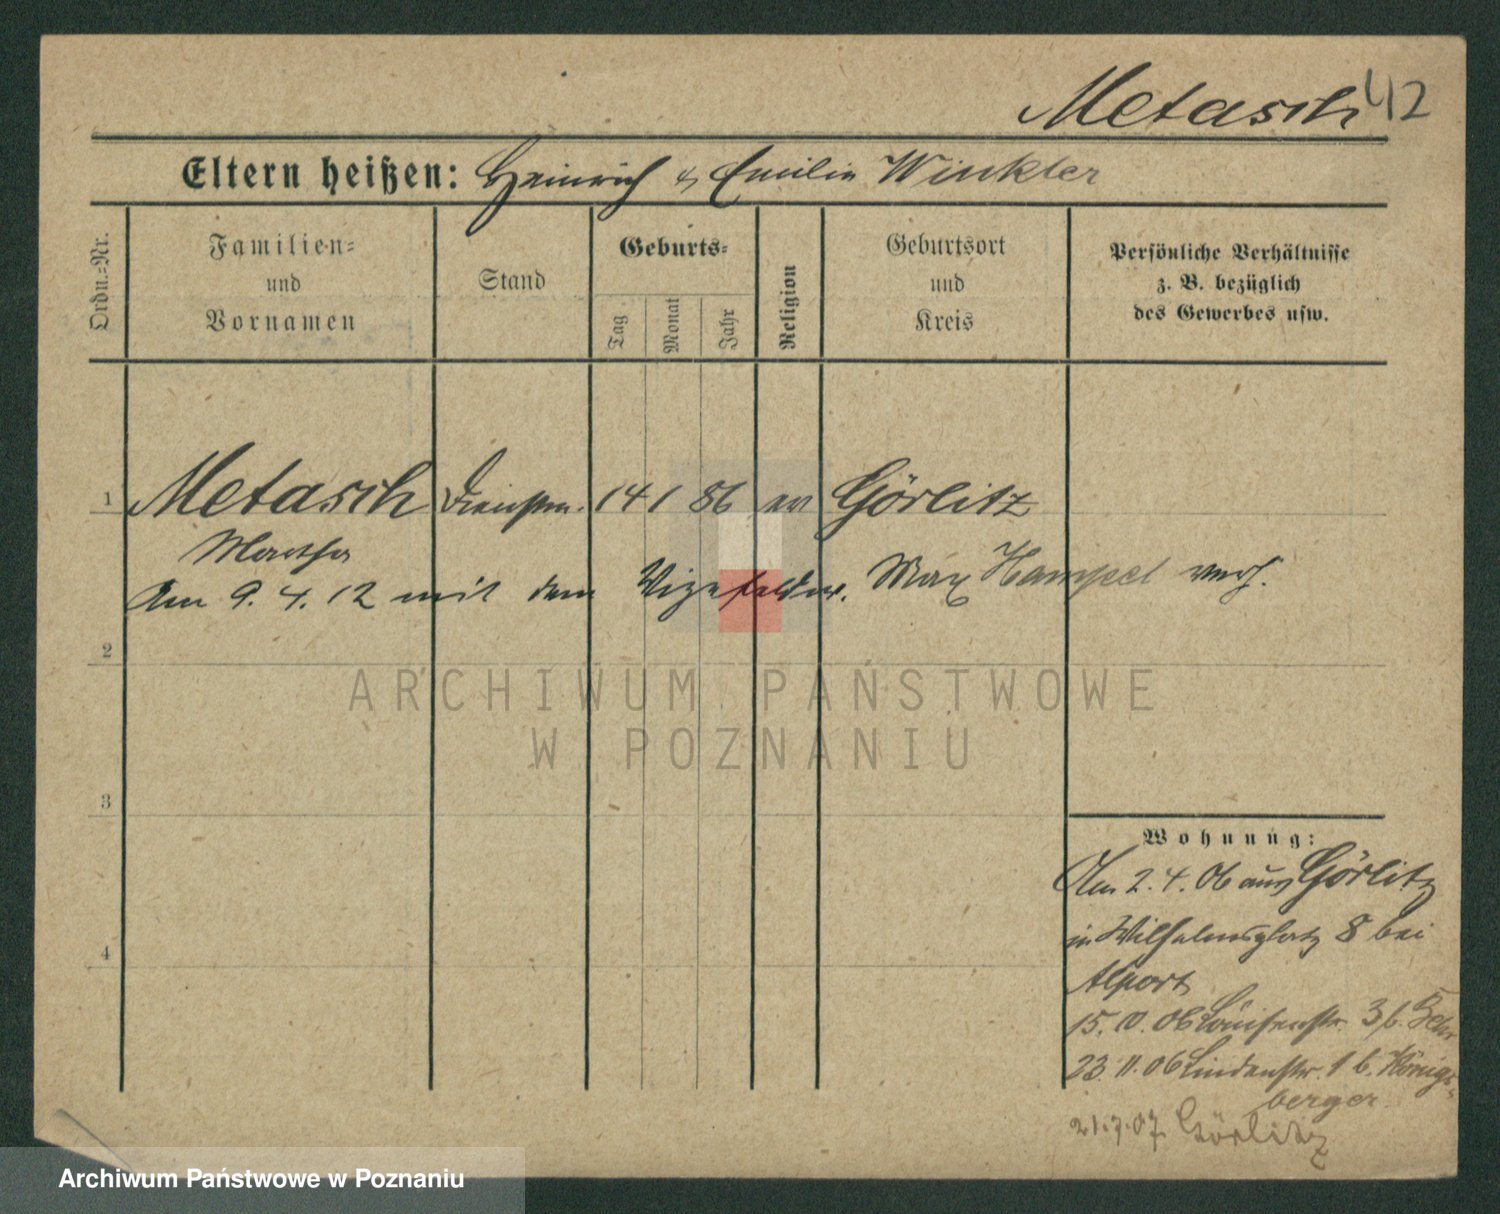 Metasch 42
Eltern heißen: Heinrich & Emilie Winkler
Ordn.=Nr.
Familien=
und
Vornamen
Stand
Geburts=
Tag
Monat
Jahr
Religion
Geburtsort
und
Kreis
Persönliche Verhältnisse
z. B. bezüglich
des Gewerbes usw.
1 Metasch Dienstm. 14 1 86 ev Görlitz
Martha
Am 9. 4. 12 mit dem Vizefeldw. Max Hampel verh.
2
ARCHIWUM PAŃSTWOWE
W POZNANIU
3
4
Wohnung:
Am 2. 4. 06 aus Görlitz
in Wilhelmsplatz 8 bei
Alport
15. 10. 06 Louisenstr. 3 b.
23. 11. 06 Lindenstr. 1 b. Königs-
berger
21.7.07 Görlitz
Archiwum Państwowe w Poznaniu